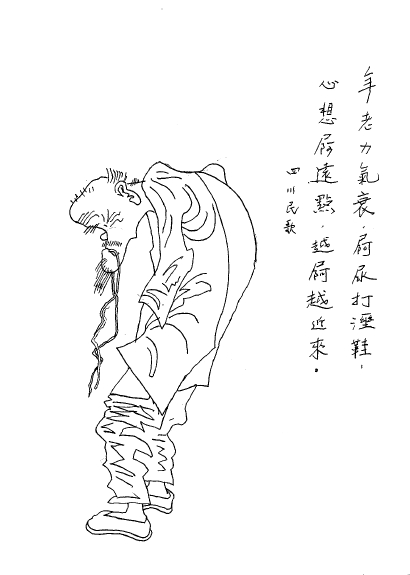 年老力氣衰，屙尿打溼鞋，
心想屙遠點，越屙越近來。
四川民歌